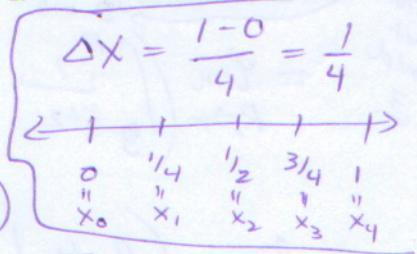 Δx = (1-0)/4 = 1/4
0 1/4 1/2 3/4 1
" " " " "
x₀ x₁ x₂ x₃ x₄